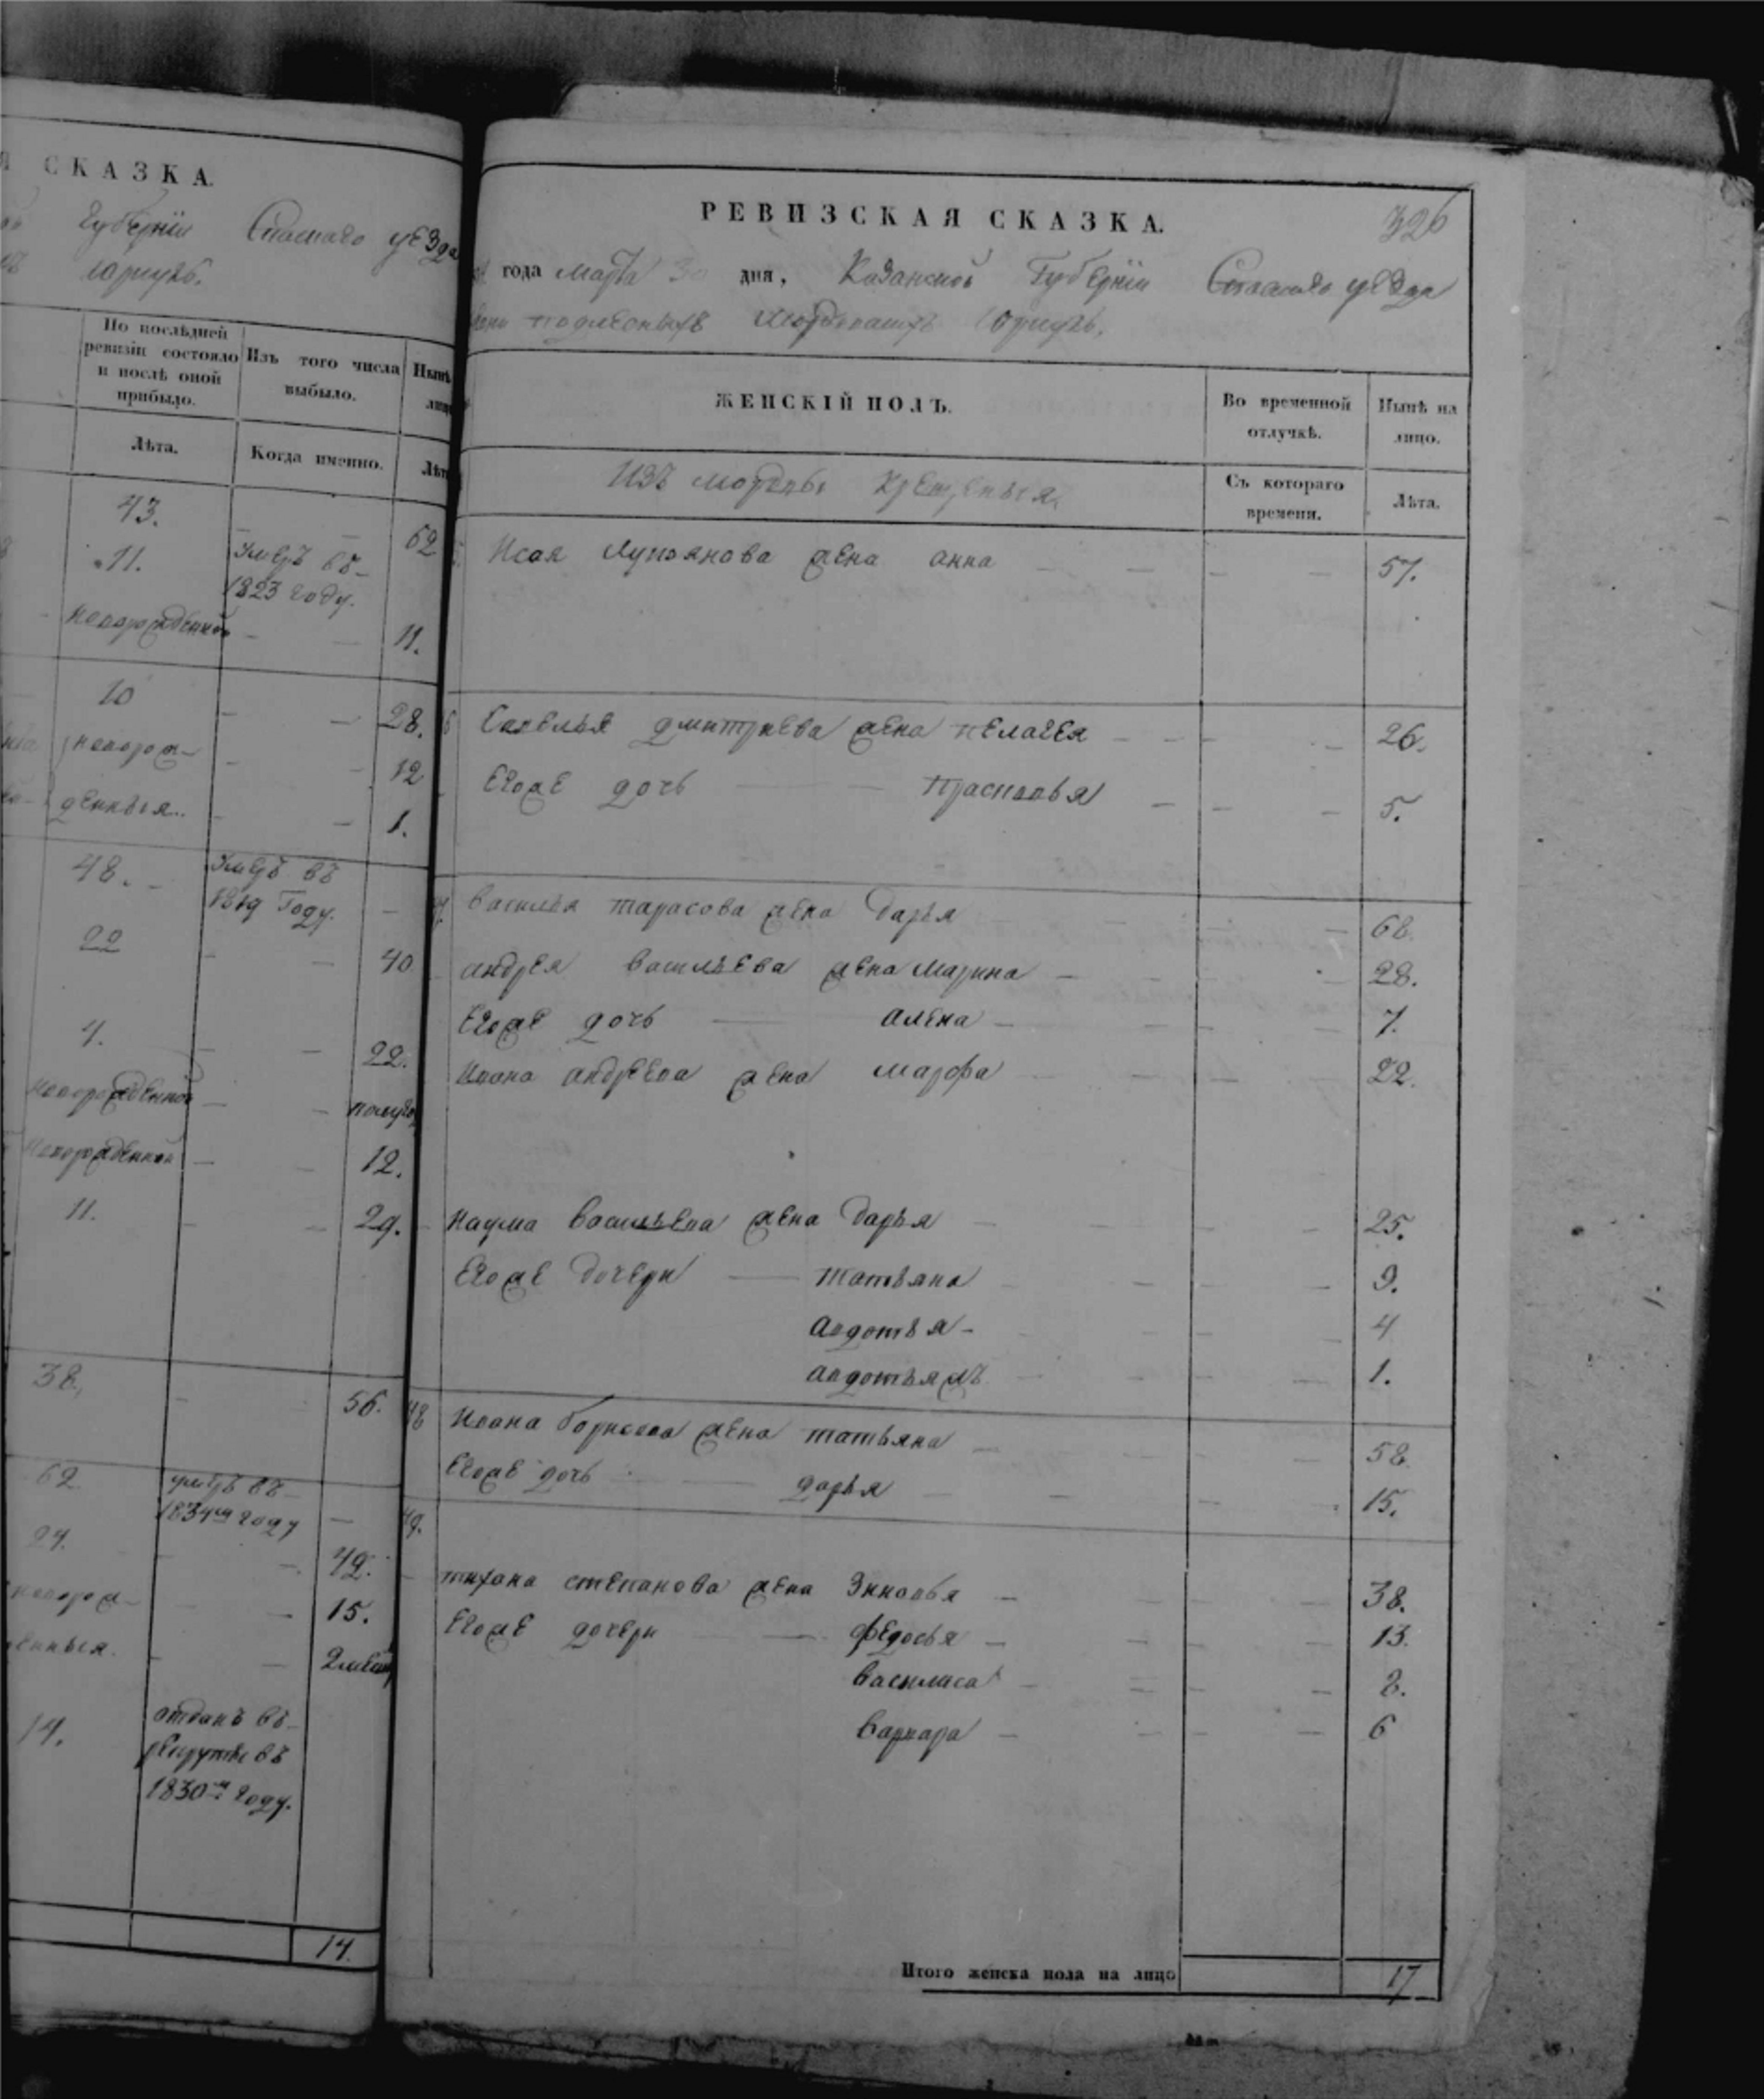 СКАЗКА.
Губернiи Спаскаго уѣзда
юркуль.
По послѣдней ревизiи состояло и послѣ оной прибыло.
Изъ того числа выбыло.
Лѣта.
Когда именно.
43.
62
11.
Умеръ въ
1823 году.
новорожденной
11.
10
28.
новорож-
12
денныя
1.
48.
Умеръ въ
1819 Году.
22
40
4.
22.
новорожденной
полуго
новорожденной
12.
11.
29.
38.
56.
62.
умеръ въ
1834м году
24.
42.
новорож-
15.
енныя.
14.
отданъ въ
рекруты въ
1830м году.
14.
РЕВИЗСКАЯ СКАЗКА.
326
года марта 30 дня, Казанской Губернiи Спаскаго уѣзда
юркуль.
ЖЕНСКIЙ ПОЛЪ.
Во временной отлучкѣ.
Нынѣ на лицо.
Изъ мордвы крещеныя.
Съ котораго времени.
Лѣта.
Исая Лупоянова жена анна 57.
Савелья дмитриева жена пелагея 26.
Егоже дочь Прасковья 5.
Василья тарасова жена Дарья 68.
андрея васильева жена марина 28.
Егоже дочь алена 7.
Ивана андреева жена марфа 22.
Наума васильева жена Дарья 25.
Егоже дочери татьяна 9.
авдотья 4
авдотьяжъ 1.
48 Ивана борисова жена татьяна 58.
Егоже дочь дарья 15.
49.
тихона степанова жена Зиновья 38.
Егоже дочери федосья 13.
василиса 8.
варвара 6
Итого женска пола на лицо 17